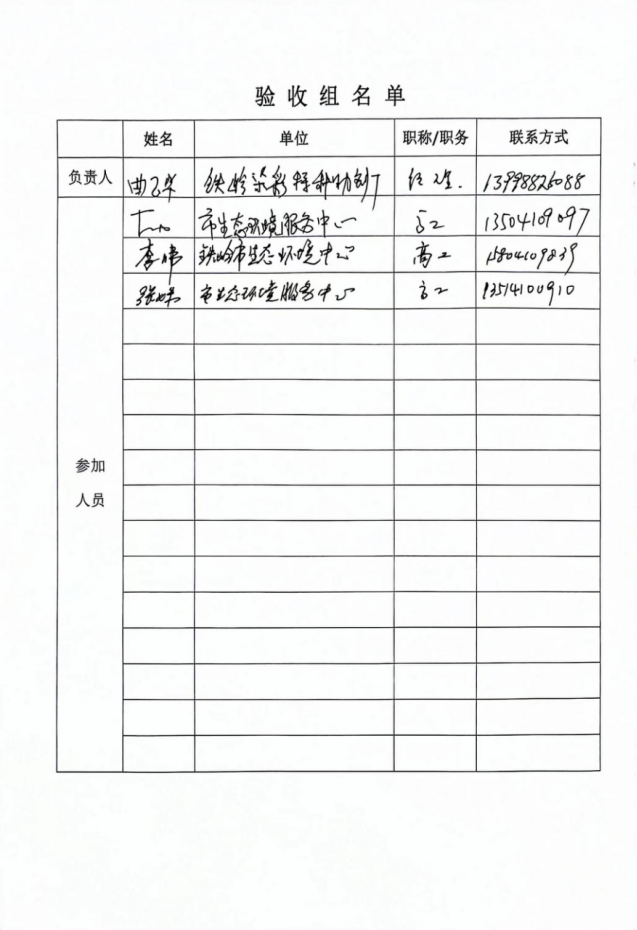 验收组名单
姓名 单位 职称/职务 联系方式
负责人 曲 铁岭 经理. 13998826088
市生态环境服务中心 高工 13504109097
李伟 铁岭市生态环境中心 高工 15804109839
张 市生态环境服务中心 高工 13514100910
参加
人员